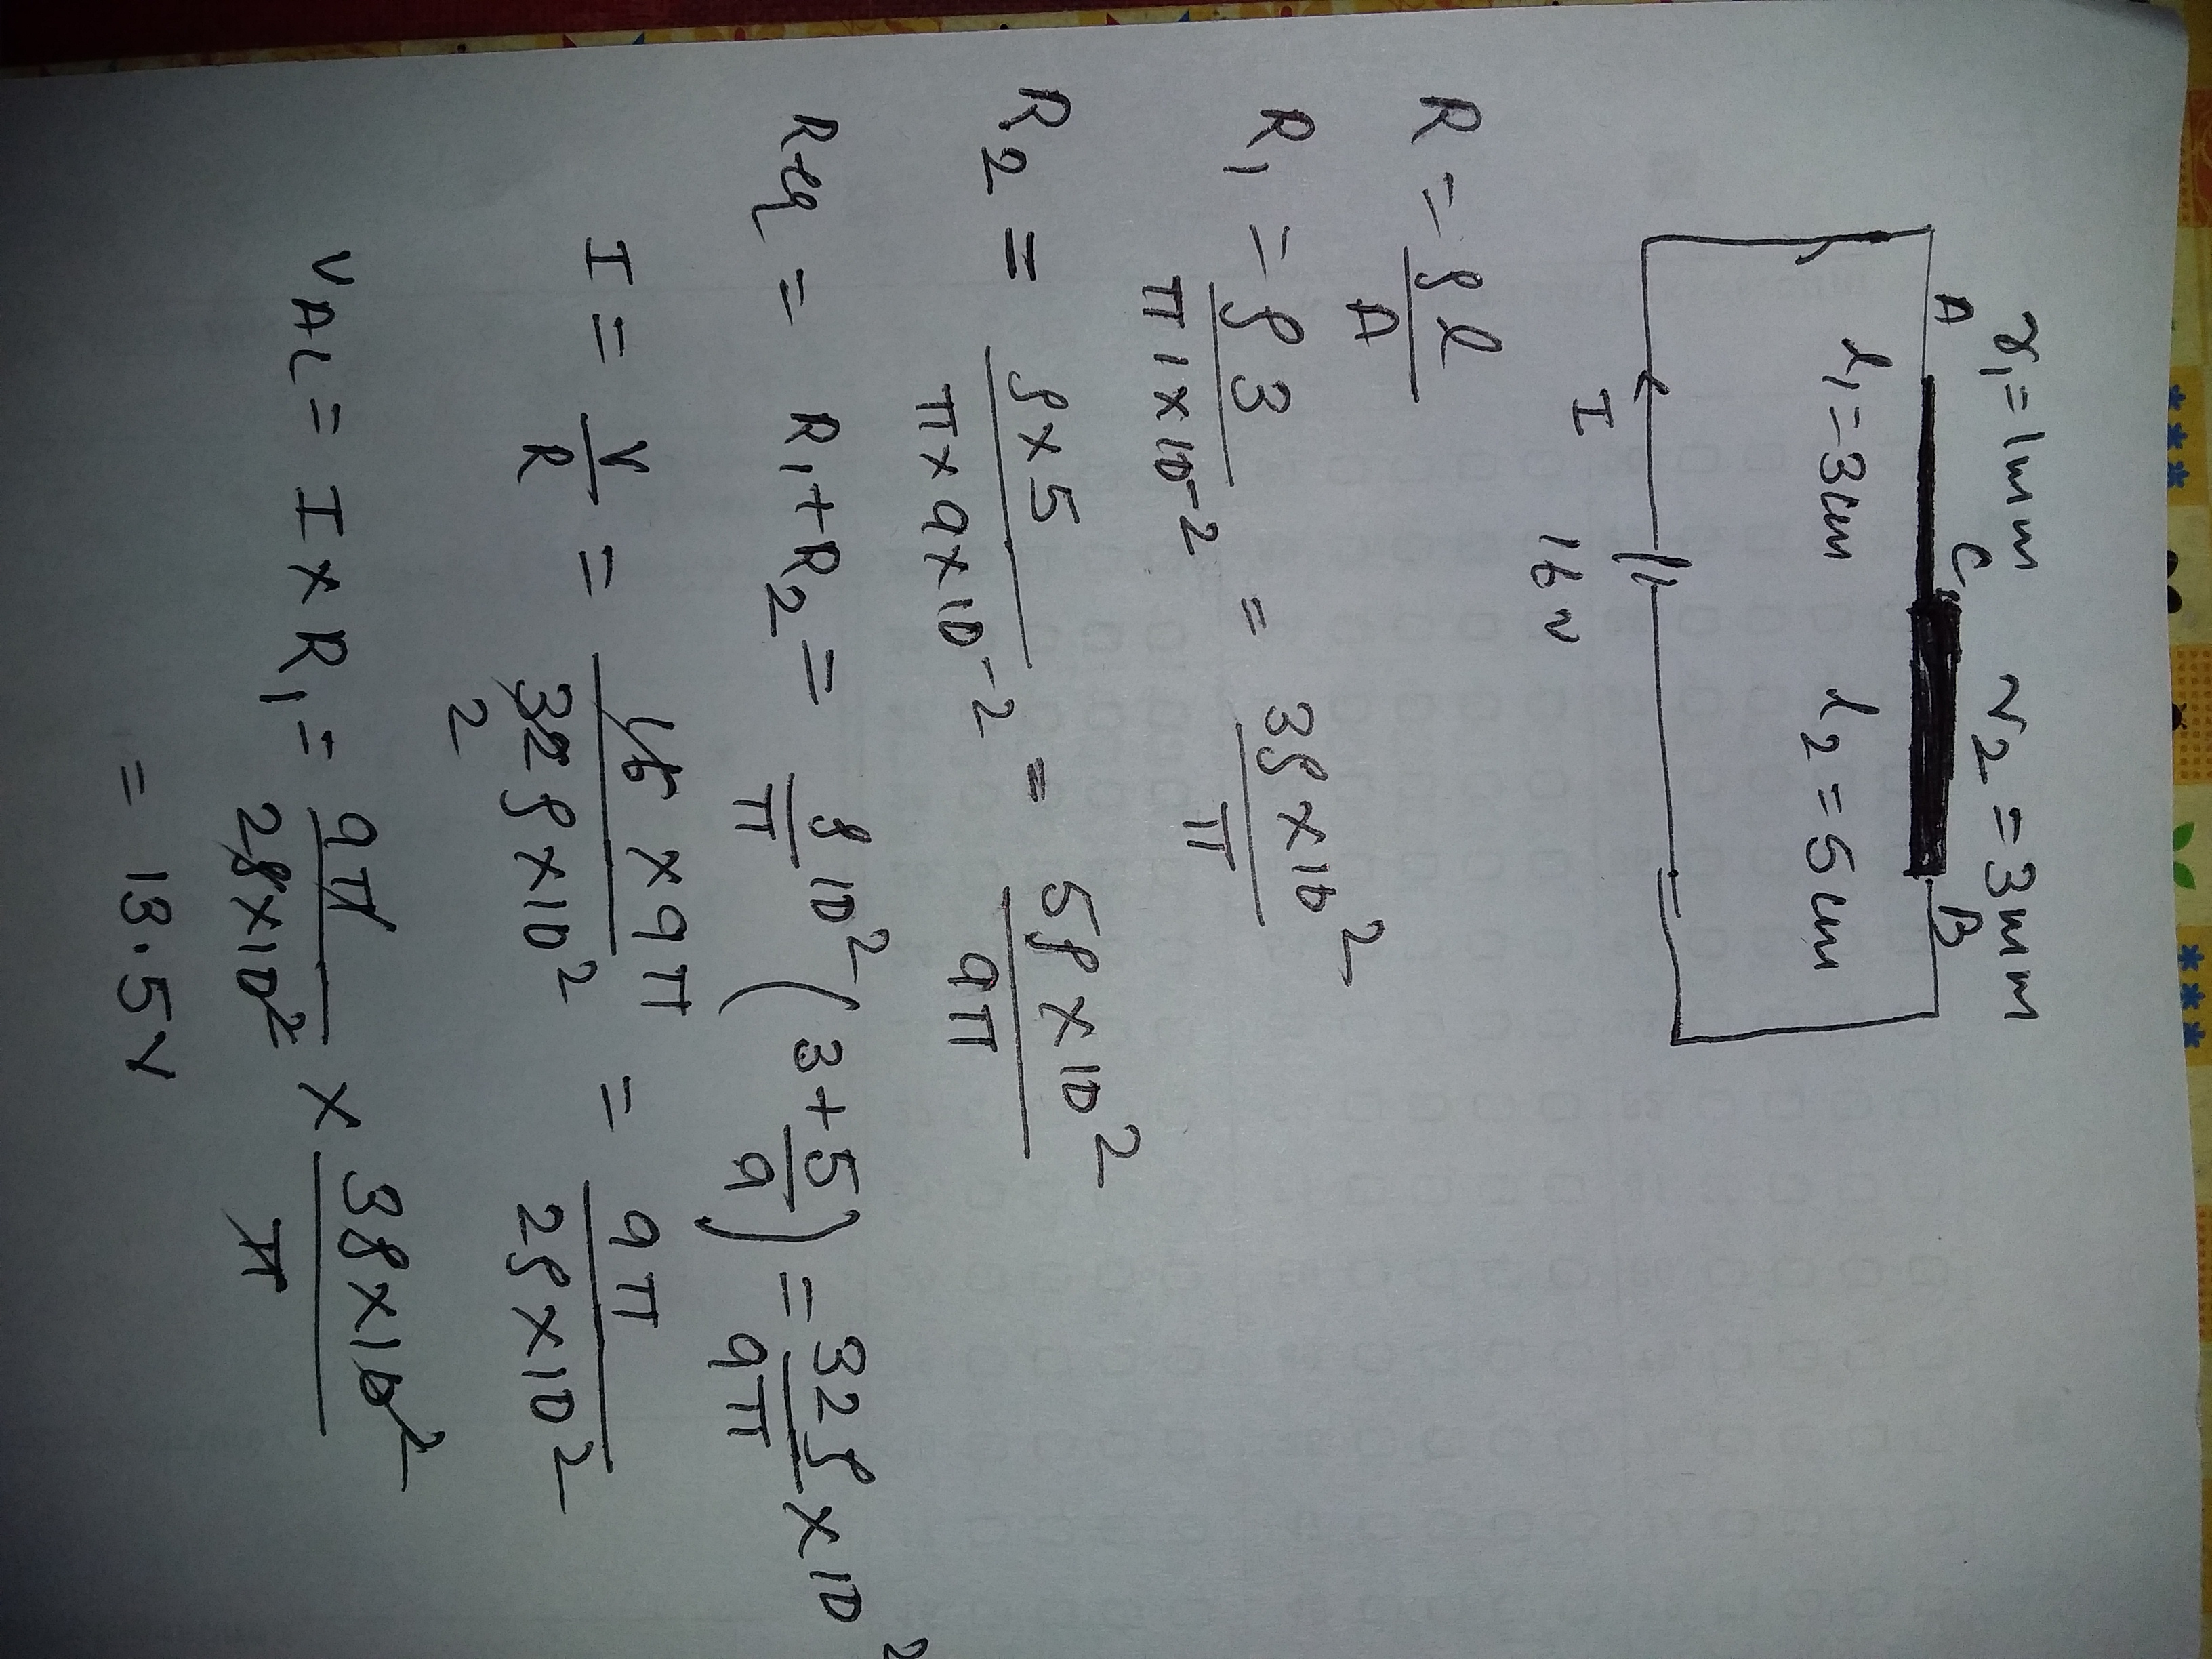 r₁ = 1mm r₂ = 3mm
A C B
l₁ = 3cm l₂ = 5cm
I
16 v
R = ρl/A
R₁ = ρ3/π1×10⁻² = 3ρ×10²/π
R₂ = ρ×5/π×9×10⁻² = 5ρ×10²/9π
Req = R₁+R₂ = ρ/π 10² (3+5/9) = 32ρ/9π ×10²
I = V/R = 16×9π/32ρ×10² = 9π/2ρ×10²
2
VAC = I×R₁ = 9π/2ρ×10² × 3ρ×10²/π
= 13.5V